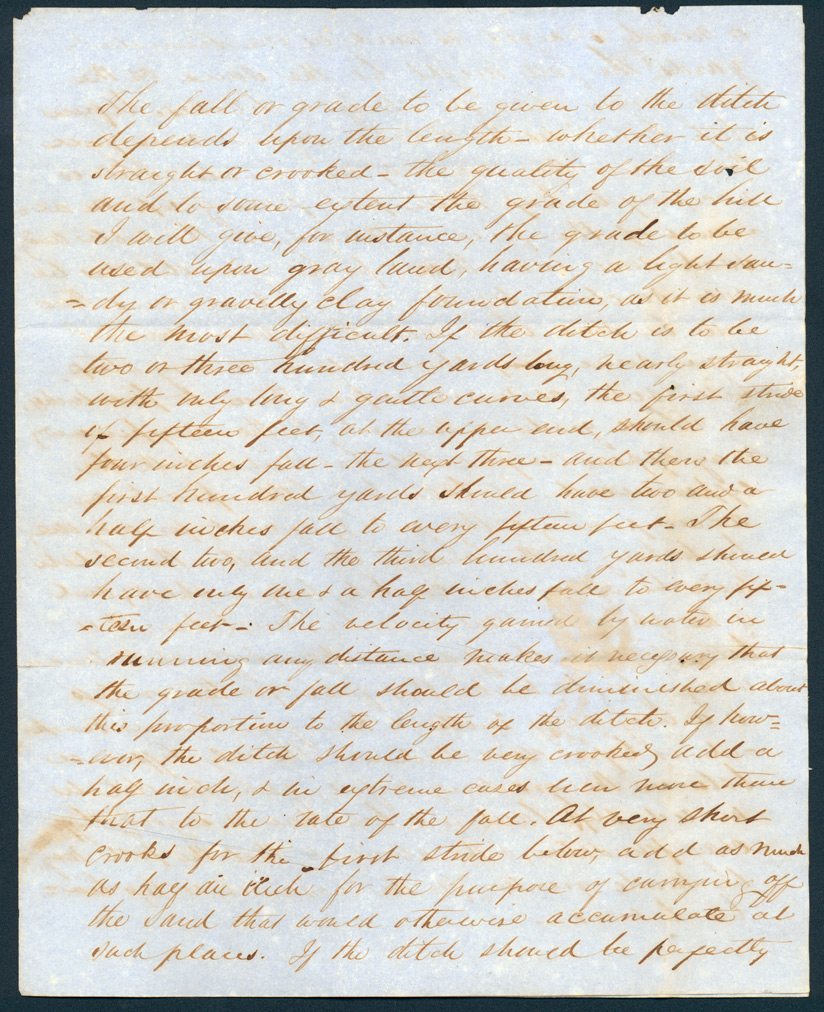 The fall or grade to be given to the ditch
depends upon the length - whether it is
straight or crooked - the quality of the soil
and to some extent the grade of the hill
I will give, for instance, the grade to be
used upon gray land, having a light san=
=dy or gravelly clay foundation, as it is much
the most difficult. If the ditch is to be
two or three hundred yards long, nearly straight,
with only long & gentle curves, the first stride
of fifteen feet, at the upper end, should have
four inches fall - the next three - and then the
first hundred yards should have two and a
half inches fall to every fifteen feet - The
second two, and the third hundred yards should
have only one & a half inches fall to every fif-
-teen feet -. The velocity gained by water in
running any distance makes it necessary that
the grade or fall should be diminished about
this proportion to the length of the ditch. If how=
=ever, the ditch should be very crooked, add a
half inch, & in extreme cases even more than
that to the rate of the fall. At very short
crooks for the first stride below, add as much
as half an inch for the purpose of carrying off
the sand that would otherwise accumulate at
such places. If the ditch should be perfectly